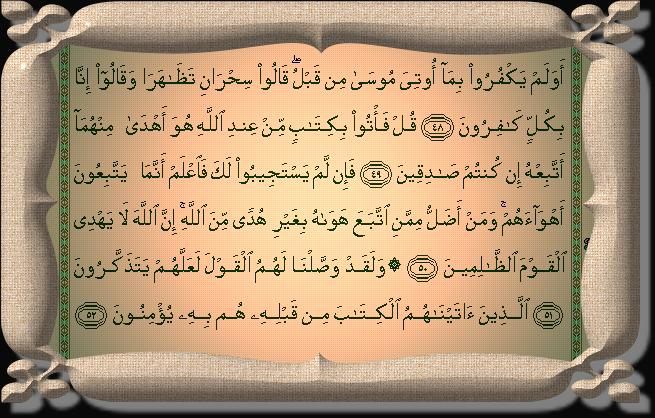 أَوَلَمْ يَكْفُرُوا۟ بِمَآ أُوتِىَ مُوسَىٰ مِن قَبْلُ ۖ قَالُوا۟ سِحْرَانِ تَظَـٰهَرَا وَقَالُوٓا۟ إِنَّا
بِكُلٍّ كَـٰفِرُونَ ٤٨ قُلْ فَأْتُوا۟ بِكِتَـٰبٍ مِّنْ عِندِ ٱللَّهِ هُوَ أَهْدَىٰ مِنْهُمَآ
أَتَّبِعْهُ إِن كُنتُمْ صَـٰدِقِينَ ٤٩ فَإِن لَّمْ يَسْتَجِيبُوا۟ لَكَ فَٱعْلَمْ أَنَّمَا يَتَّبِعُونَ
أَهْوَآءَهُمْ ۚ وَمَنْ أَضَلُّ مِمَّنِ ٱتَّبَعَ هَوَىٰهُ بِغَيْرِ هُدًى مِّنَ ٱللَّهِ ۚ إِنَّ ٱللَّهَ لَا يَهْدِى
ٱلْقَوْمَ ٱلظَّـٰلِمِينَ ٥٠ ۞ وَلَقَدْ وَصَّلْنَا لَهُمُ ٱلْقَوْلَ لَعَلَّهُمْ يَتَذَكَّرُونَ
٥١ ٱلَّذِينَ ءَاتَيْنَـٰهُمُ ٱلْكِتَـٰبَ مِن قَبْلِهِۦ هُم بِهِۦ يُؤْمِنُونَ ٥٢